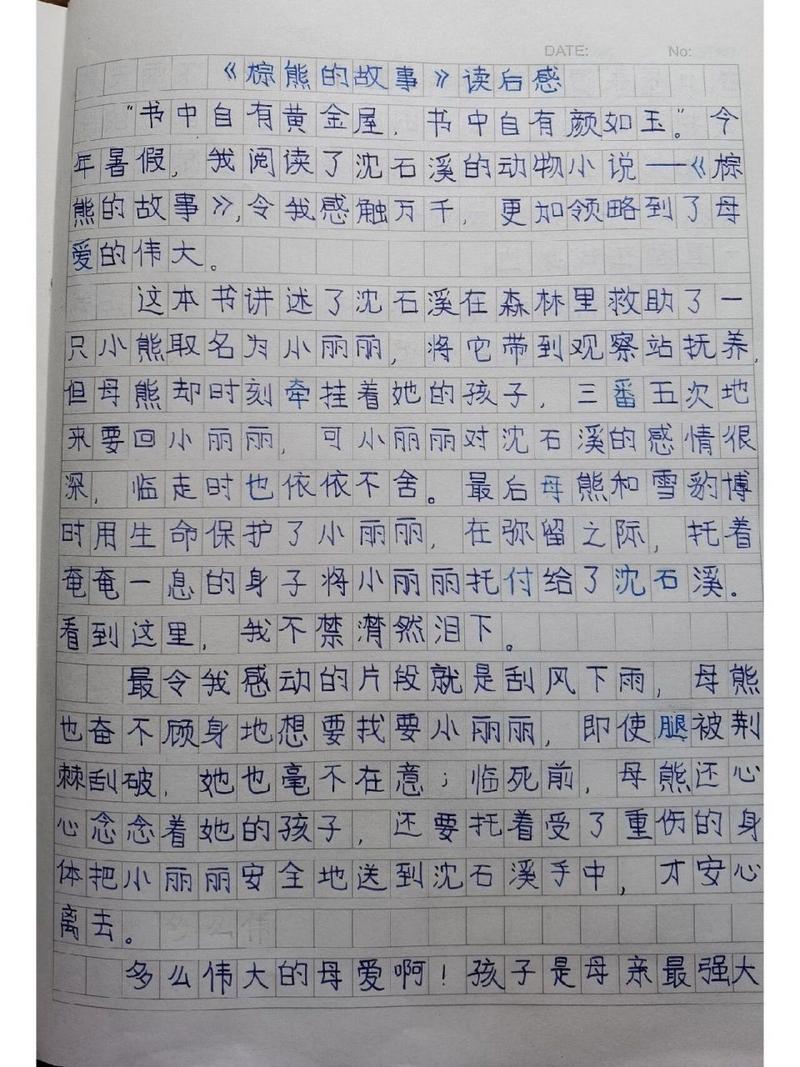 DATE: No:
《棕熊的故事》读后感
“书中自有黄金屋，书中自有颜如玉。”今
年暑假，我阅读了沈石溪的动物小说——《棕
熊的故事》，令我感触万千，更加领略到了母
爱的伟大。
这本书讲述了沈石溪在森林里救助了一
只小熊取名为小丽丽，将它带到观察站抚养，
但母熊却时刻牵挂着她的孩子，三番五次地
来要回小丽丽，可小丽丽对沈石溪的感情很
深，临走时也依依不舍。最后母熊和雪豹博
时用生命保护了小丽丽，在弥留之际，托着
奄奄一息的身子将小丽丽托付给了沈石溪。
看到这里，我不禁潸然泪下。
最令我感动的片段就是刮风下雨，母熊
也奋不顾身地想要找要小丽丽，即使腿被荆
棘刮破，她也毫不在意；临死前，母熊还心
心念念着她的孩子，还要托着受了重伤的身
体把小丽丽安全地送到沈石溪手中，才安心
离去。
多么伟大的母爱啊！孩子是母亲最强大